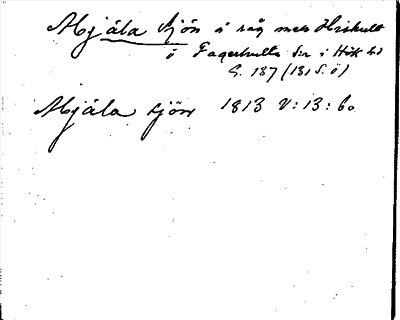 Mjåla sjön å rå med Hishult
i Fagerhults sn i Hök hd
G. 187 (131 S. ö)
Mjåla sjön 1813 V: 13: 60